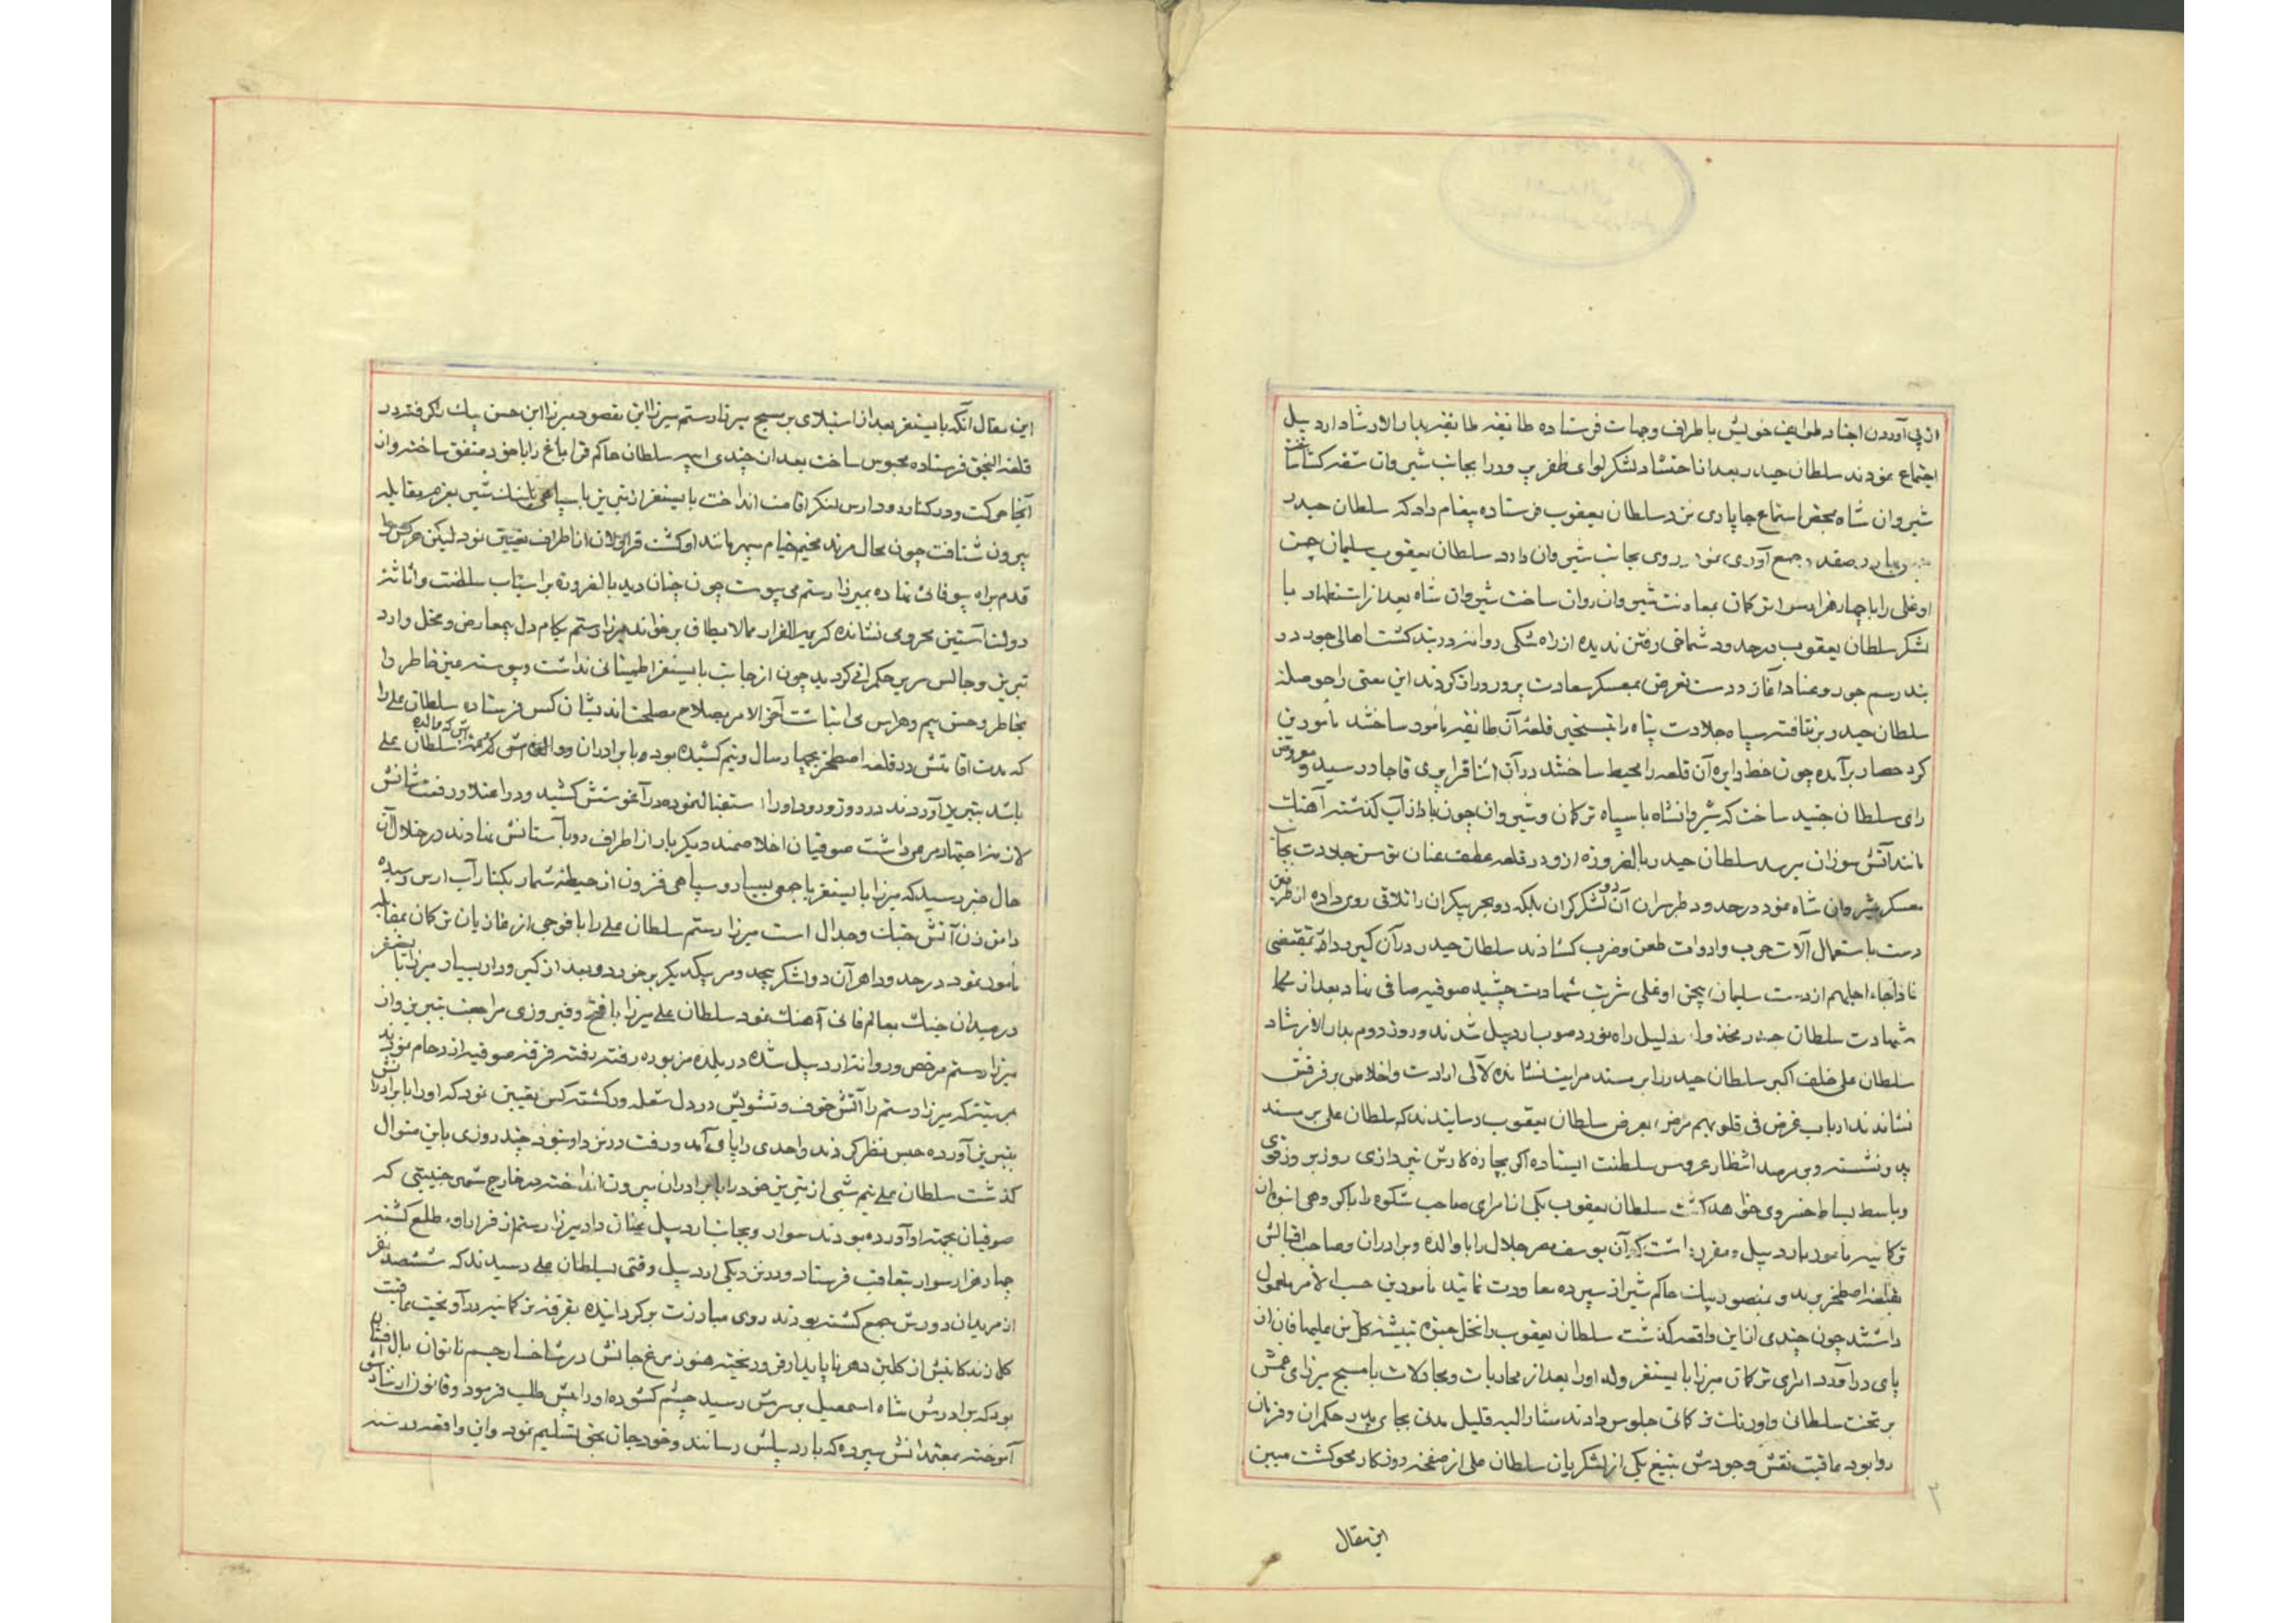 از پی آوردن اجناد طوایف خویش باطراف وجهات فرستاده طائفه طائفه بدارالارشاد اردبیل
اجتماع نمودند سلطان حیدر بعد از احتشاد لشکر لوای ظفر پرور را بجانب شیروان شقه کشا ساخت
شیروان شاه بمحض استماع چاپاری نزد سلطان یعقوب فرستاده پیغام داد که سلطان حیدر
جمع آوری نموده روی بجانب شیروان دارد سلطان یعقوب سلیمان بیجن
اوغلی را با چهار هزار سوار ترکمان بمعاونت شیروان روان ساخت شیروان شاه بعد از استظهار با
لشکر سلطان یعقوب در حدود شماخی رفتن ندیده از راه شکی روانه دربند کشت اهالی چون در
بند رسم جور و عناد آغاز و دست تعرض بمعسکر سعادت پرور دراز کردند این معنی را حوصله
سلطان حیدر برنتافته سپاه جلادت پناه را بتسخیر قلعه آن طائفه مامور ساختند مامورین
کرد حصار برآمده چون خط دایره آن قلعه را محیط ساختند در آن اثنا قراپیری قاجار رسید و معروض
رای سلطان جنید ساخت که شیروانشاه با سپاه ترکمان و شیروان چون باد از آب کذشته آهنک
مانند آتش سوزان میرسد سلطان حیدر بالضروره از ور در قلعه عطف عنان توسن جلادت بجانب
معسکر شیروان شاه نمود در حدود طبرسران آن دو لشکر کران بلکه دو بحر بیکران را تلاقی روی داده از طرفین
دست باستعمال آلات حرب وادوات طعن وضرب کشادند سلطان حیدر در آن کیرودار بمقتضی
فاذا جاء اجلهم از دست سلیمان بیجن اوغلی شربت شهادت چشید صوفیه صافی نهاد بعد از
شهادت سلطان حیدر راه نورد صوب اردبیل شدند و روز دوم بدار الارشاد
سلطان علی خلف اکبر سلطان حیدر را بر مسند مرابت نشانده لآلی ارادت واخلاص بر فرقش
نشاندند ارباب غرض فی قلوبهم مرض بعرض سلطان یعقوب رسانیدند که سلطان علی بر مسند
پدر نشسته و بر مرصد انتظار عروس سلطنت ایستاده اکر بچاره کارش نپردازی روز بروز قوی
وباسط بساط خسروی خواهد کشت سلطان یعقوب یکی از امرای صاحب شکوه را با کروهی انبوه از
ترکمانیه مامور باردبیل و مقرر داشت که آن یوسف مصر جلال را با والده وبرادران وصاحب اقبالش
بقلعه اصطخر برده و بمنصور بیک حاکم شیراز سپرده معاودت نمایند مامورین حسب الامر معمول
داشتند چون چندی از این واقعه کذشت سلطان یعقوب را نخل حیوة بتیشه کل من علیها فان از
پای درآمد امرای ترکمان میرزا بایسنقر ولد او را بعد از محاربات ومجادلات با مسیح میرزای عمش
بر تخت سلطانی و اورنک ترکمانی جلوس دادند مشارالیه قلیل مدتی بجای پدر حکمران و فرمان
روا بود عاقبت نقش وجودش بتیغ یکی از لشکریان سلطان علی از صفحه روزکار محو کشت مبین
این مقال
۲
این مقال آنکه بایسنقر بعد از استیلای بر مسیح میرزا رستم میرزا ابن مقصود میرزا ابن حسن بیک را کرفته در
قلعه النجق فرستاده محبوس ساخت بعد از چندی ایبه سلطان حاکم قراباغ را با خود متفق ساخته و از
آنجا حرکت و در کنار رود ارس لنکر اقامت انداخت بایسنقر از تبریز با سپاهی بعزم مقابله
بیرون شتافت چون محال مرند مخیم خیام سپهر مانند او کشت قراولان از اطراف تعیین نمود لیکن هرکس را
قدم براه بیوفائی نهاده بمیرزا رستم می پیوست چون چنان دید بالضروره بر اسباب سلطنت و اثاثه
دولت آستین محرومی نشانده کریمه الفرار مما لایطاق برخواند میرزا رستم بکام دل بیمعارض و مخل وارد
تبریز و جالس سریر حکمرانی کردید چون از جانب بایسنقر اطمینانی نداشت و پیوسته عین خاطر را
بخاطر وحش بیم و هراس می انباشت آخر الامر بصلاح مصلحت اندیشان کس فرستاده سلطان علی را
که مدت اقامتش در قلعه اصطخر بچهار سال و نیم کشیده بود با برادران و والده اش که عمه سلطان علی
باشد بتبریز آوردند در روز ورود او را استقبال نموده در آغوشش کشید و در اعتلا و رفعت شانش
لازمه اجتهاد مرعی داشت صوفیان اخلاصمند دیکر بار از اطراف رو بآستانش نهادند در خلال آن
حال خبر رسید که میرزا بایسنقر با جمعی بسیار و سپاهی فزون از حیطه شمار بکنار آب ارس رسیده
دامن زن آتش جنک و جدال است میرزا رستم سلطان علی را با فوجی از غازیان ترکمان بمقابله
مامور نمود در حدود اهر آن دو لشکر بیحد و مر بیکدیکر برخورد و بعد از کیرودار بسیار میرزا بایسنقر
در میدان جنک بعالم فانی آهنک نمود سلطان علی میرزا با فتح و فیروزی مراجعت بتبریز و از
میرزا رستم مرخص و روانه اردبیل شده در بلده مزبوره رفته رفته فرقه صوفیه ازدحام نمودند
بمرتبه که میرزا رستم را آتش خوف و تشویش در دل شعله ور کشته کس تعیین نمود که او را با برادرانش
بتبریز آورده حبس نظر کردند و احدی را یارای آمد و رفت در نزد او نبود چند روزی باین منوال
کذشت سلطان علی نیم شبی از تبریز خود را با برادران بیرون انداخته در خارج شهر جنیبتی که
صوفیان بجهة او آورده بودند سوار و بجانب اردبیل عنان داد میرزا رستم از فرار او مطلع کشته
چهار هزار سوار بتعاقب فرستاد و در نزدیکی اردبیل وقتی بسلطان علی رسیدند که ششصد نفر
از مریدان دورش جمع کشته بودند روی مبارزت برکردانیده بفرقه ترکمانیه درآویخت عاقبت
کل زندکانیش از کلبن دهر ناپایدار فرو ریخته هنوز مرغ جانش در شاخسار جسم ناتوان بال افشان
بود که برادرش شاه اسمعیل بر سرش رسید چشم کشوده او را پیش طلب فرمود و قانون ارشادش
آموخته بمعتمدانش سپرده که باردبیلش رسانند و خود جان بحق تسلیم نمود و این واقعه در سنه